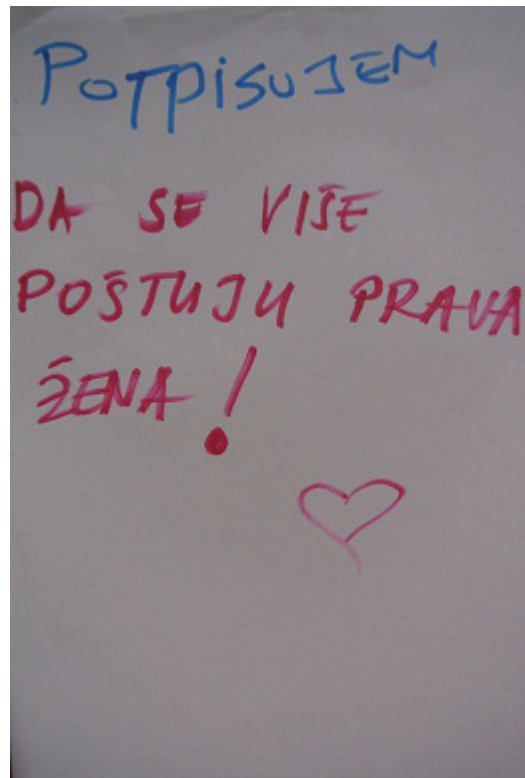 POTPISUJEM
DA SE VIŠE
POŠTUJU PRAVA
ŽENA!